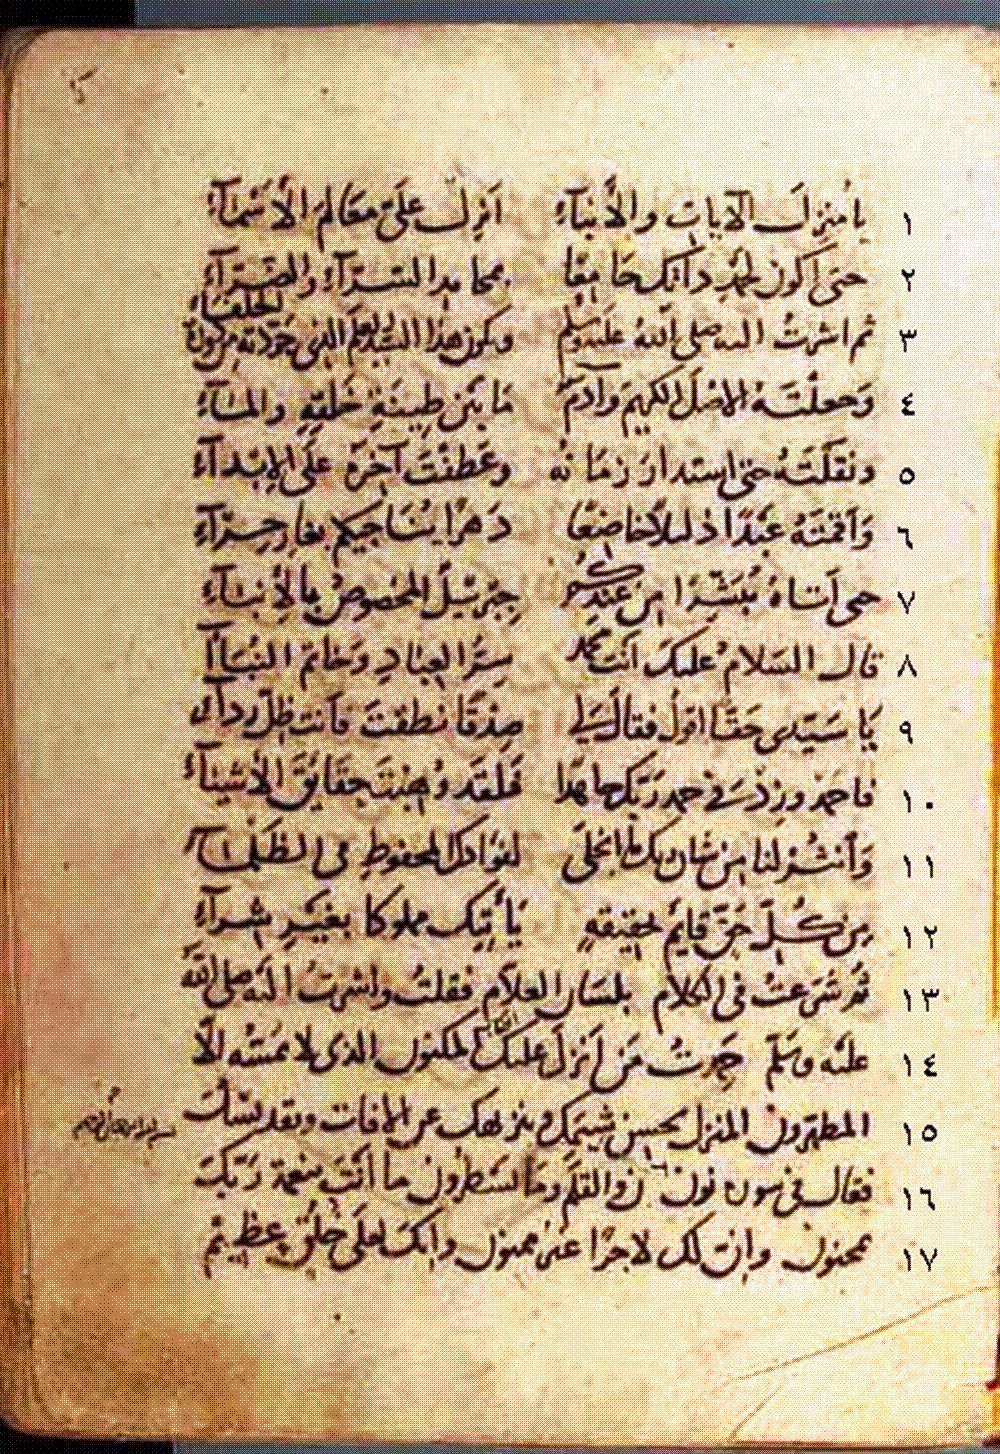 يا مُنزلَ الآيات والأنباءِ أنزل عَلَى مَعَالِمَ الأسْمآءِ ١
حتى أكون لحمد ذاتك جامعًا بمحامد السَّرآءِ والضَّرآءِ ٢
الخلفاء
ثم اشرتُ اليه صلى الله عليه وسلم ويكون هذا السيد العلم الذي جردته من دورة ٣
وَجعلتَه الاصل الكريم وَآدَمٌ مَا بَيْن طينَةِ خَلقِهِ والمآءِ ٤
ونقلتَهُ حتى استدار زمانه وعَطفْتَ آخرهُ عَلَى الابدآءِ ٥
وَأقمتَهُ عَبْدًا ذليلا خاضعًا دَهْرًا يُنَاجيكم بغار حِرآءِ ٦
حتى أتاهُ مُبَشِّرًا من عندكم جِبْرئيلُ المخصوصُ بالأنبآءِ ٧
قال السلام عليك أنت محمد سِرُّ العبادِ وَخاتم النُبَآءِ ٨
يا سَيّدي حَقًّا اقولُ فقال لي صِدْقًا نطقتَ فأنت ظِلّ ردآئي ٩
فاحمد وزِدْ في حمد رَبّك جاهدا فَلقَد وُهِبْتَ حَقَايقَ الأشيآءِ ١٠
وَأنثُرْ لنا من شان ربك ما انجلَى لفؤادك المحفوظ في الظَلْمآءِ ١١
مِن كُلّ حَقٍّ قايمٍ لحقيقةٍ يَأتيك مملوكا بغَيْرِ شرآءِ ١٢
ثم شَرَعتُ في الكلام بلسان العلاّم فقلتُ واشرتُ اليه صلى اللهُ ١٣
عليه وسلم حمدتُ مَن أنزلَ عليك الكتاب المكنون الذي لا يمسّه الّا ١٤
المطهرون المنزل بحسن شيمك وتنزيهك عن الافات وتقديسك ١٥
فقال في سورة نون ن والقلم وما يسطرون ما أنتَ بنعمة رَبّكَ ١٦
بمجنون وإن لك لاجرًا غير ممنون وإنك لعلَى خلقٍ عظيم ١٧